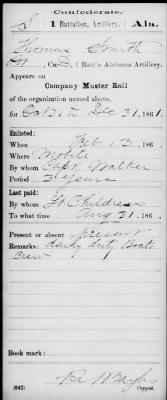 Confederate.
S 1 Battalion, Artillery. Ala.
Thomas Smith
Co. D, 1 Batt'n Alabama Artillery.
Appears on
Company Muster Roll
of the organization named above,
for Oct 31 to Dec 31, 186 .
Enlisted:
When Feb 13, 186 .
Where Mobile
By whom Capt Walker
Period 3 years
Last paid:
By whom Childress
To what time Aug 31, 186 .
Present or absent present
Remarks: daily duty Boats
crew
Book mark:
(642) Copyist.